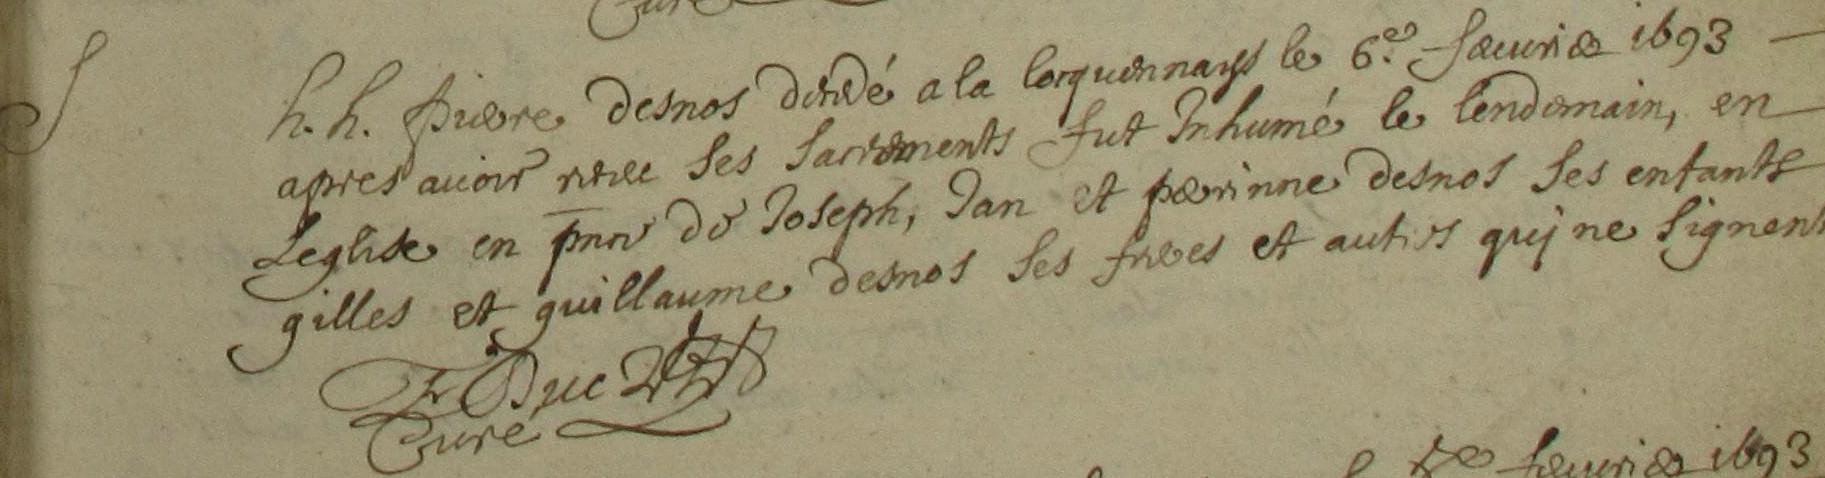 Curé
S
h. h. pierre desnos décédé a la locquennays le 6.e feuvrier 1693
apres auoir receu ses sacrements fut Inhumé le lendemain, en
Leglise en pnce de Joseph, Jan et perinne desnos ses enfants
gilles et guillaume desnos ses freres et autres quj ne signent
Duc
Curé
feuvrier 1693